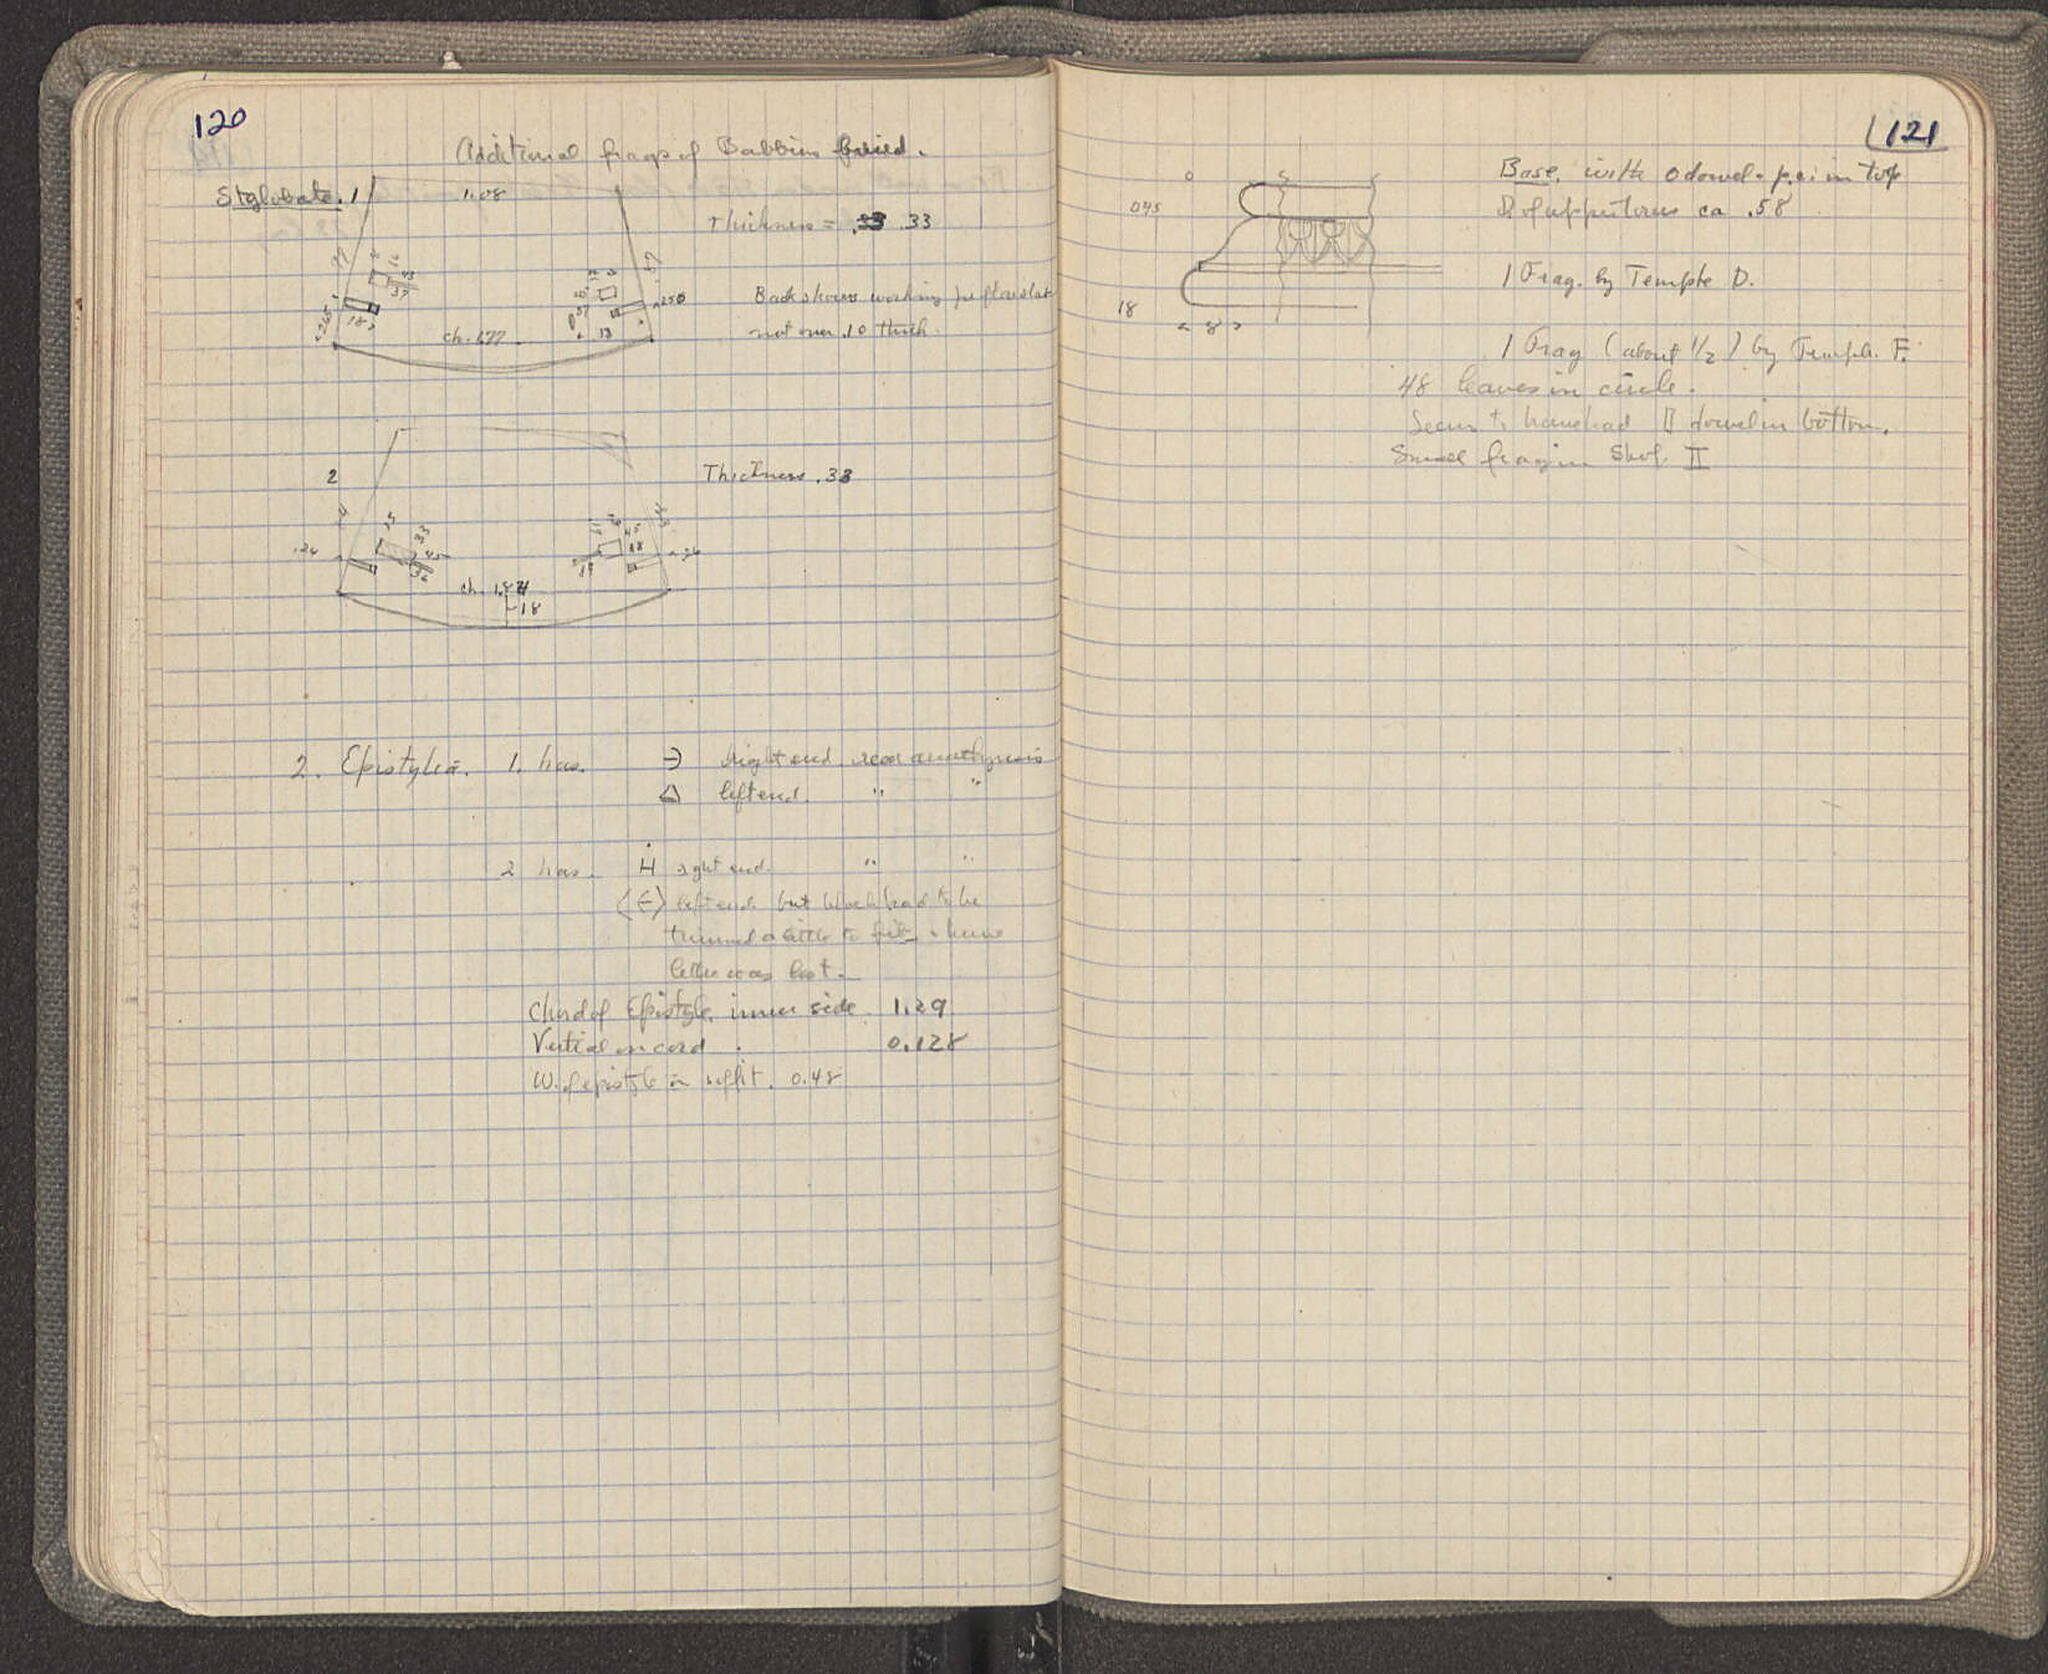 120
Additional frags of Babbius build.
Stylobate. 1
1.08
Thickness = .33
Back shows working for floor slab
not over .10 thick.
.265
18
37
.250
13
ch. 1.77
2
Thickness .33
.24
.26
ch. 1.84
18
2. Epistylia. 1. has right end rear anathyrosis
Δ left end. " "
2 has. Η right end. " "
left end but block had to be
trimmed a little to fit & hence
letter was lost.
Chord of Epistyle, inner side 1.29
Vertical on cord. 0.128
W. of epistyle in soffit. 0.48
121
Base, with dowel in top
D of upper torus ca .58
045
18
< 8 >
1 Frag. by Temple D.
1 Frag (about 1/2) by Temple F.
48 leaves in circle.
Seems to have had dowel in bottom.
Small frag in Shop. II